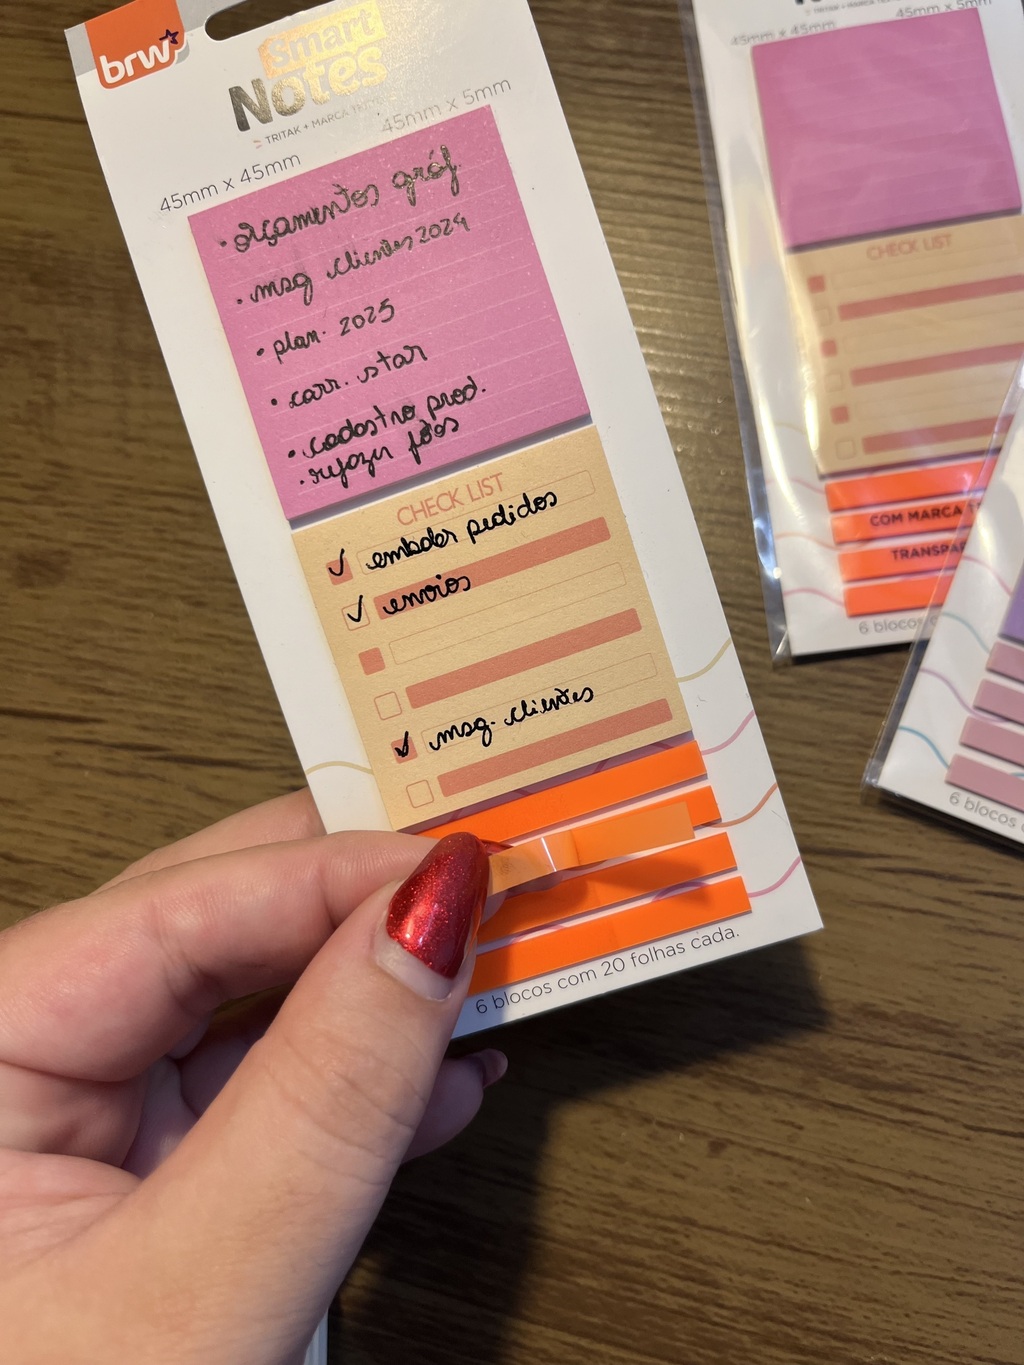 brw
Smart
Notes
TRITAK + MARCA
45mm x 45mm
45mm x 5mm
• orçamentos gráf.
• msg clientes 2024
• plan. 2025
• carr. star
• cadastro prod.
• refazer fotos
CHECK LIST
✓ embalar pedidos
✓ envios
✓ msg. clientes
6 blocos com 20 folhas cada.
45mm x 45mm
45mm x 5mm
CHECK LIST
COM MARCA
TRANSPA
6 blocos
6 blocos